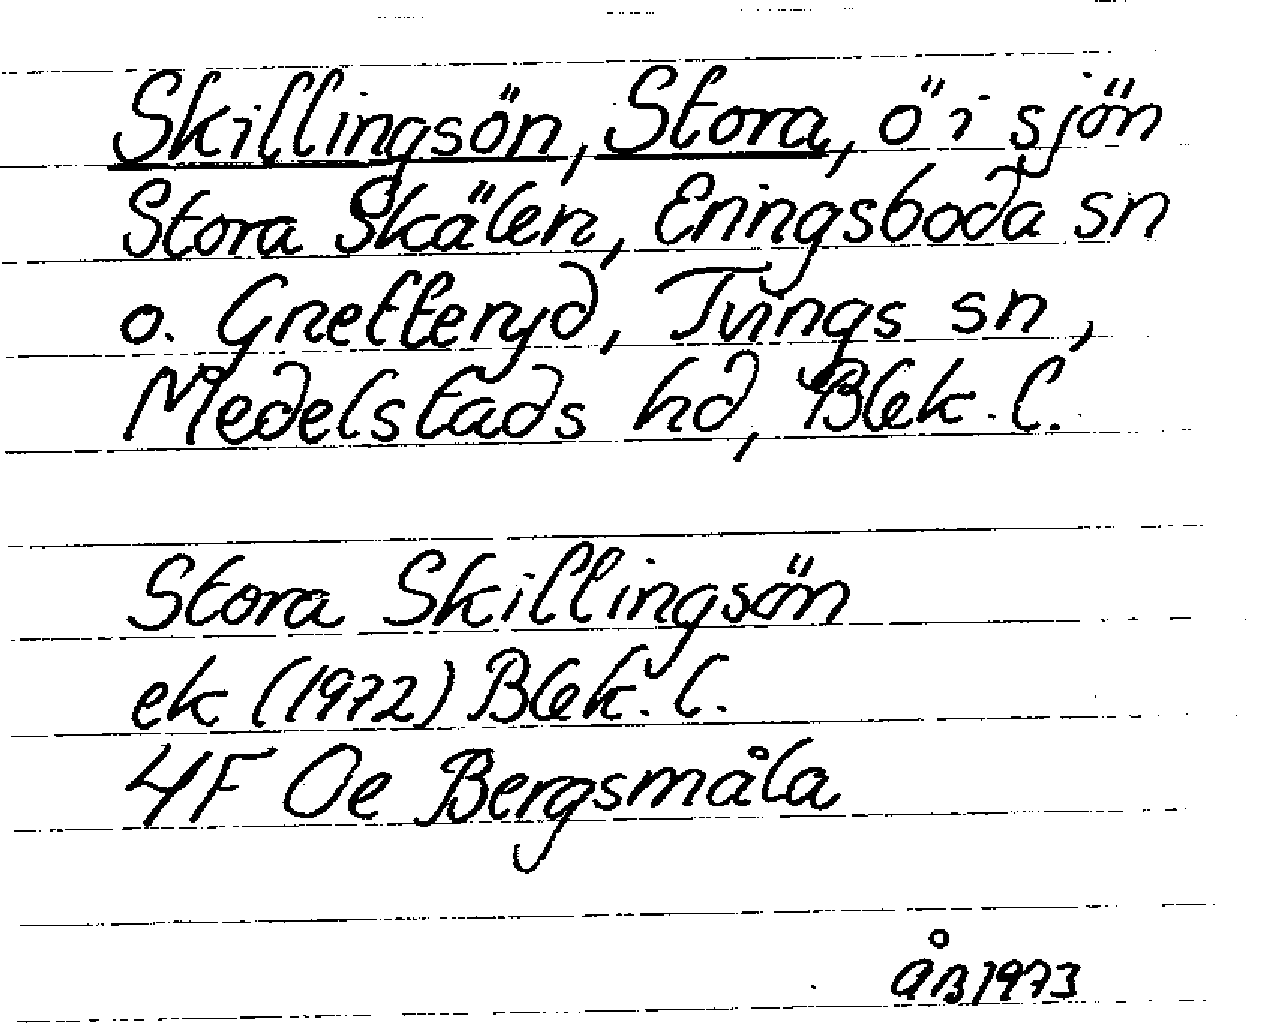 Skillingsön, Stora, ö i sjön
Stora Skälen, Eringsboda sn
o. Grefteryd, Tvings sn,
Medelstads hd, Blek. l.
Stora Skillingsön
ek (1972) Blek. l.
4F 0e Bergsmåla
ÅB 1973